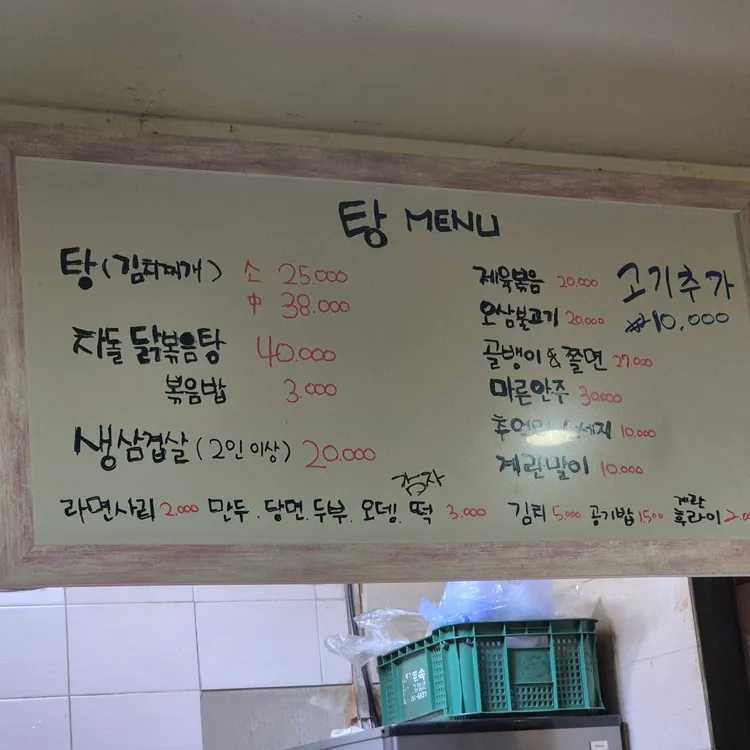 탕 MENU
탕(김치찌개) 소 25.000
中 38.000
차돌 닭볶음탕 40.000
볶음밥 3.000
생삼겹살(2인이상) 20.000
제육볶음 20,000
오삼불고기 20,000
골뱅이&쫄면 27.000
마른안주 30.000
10,000
계란말이 10,000
고기추가
₩10,000
감자
라면사리 2.000 만두.당면.두부.오뎅.떡 3.000
계란
김치 5.000 공기밥 1500 후라이